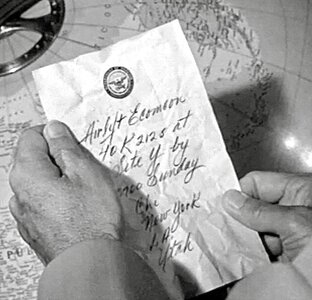 Airlift Ecomcon
40 K 2125 at
Site Y by
1200 Sunday
Chi
New York
L.A.
Utah